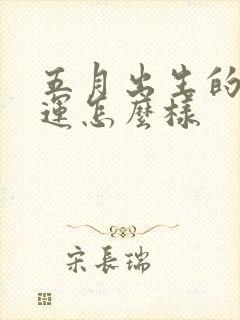 五月出生的
運怎麼樣
宋長瑞